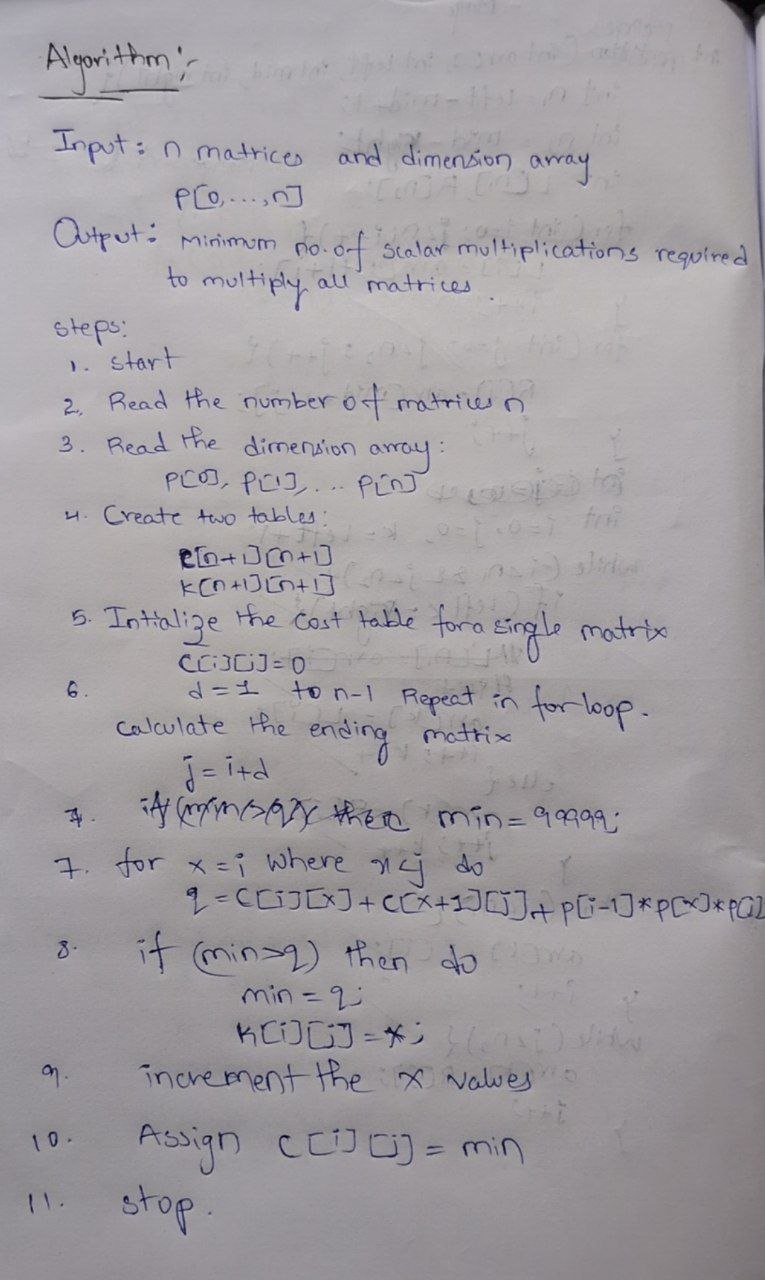 Algorithm:-
Input: n matrices and dimension array
P[0,...,n]
Output: Minimum no. of scalar multiplications required
to multiply all matrices.
steps:
1. start
2. Read the number of matrices n
3. Read the dimension array:
P[0], P[1], ... P[n]
4. Create two tables:
C[n+1][n+1]
K[n+1][n+1]
5. Intialize the cost table for a single matrix
C[i][i]=0
6. d=1 to n-1 Repeat in for loop.
calculate the ending matrix
j=i+d
min = 99999;
7. for x=i where x<j do
q = C[i][x]+C[x+1][j]+P[i-1]*P[x]*P[j]
8. if (min>q) then do
min = q;
K[i][j]=x;
9. increment the x values
10. Assign C[i][j] = min
11. stop.